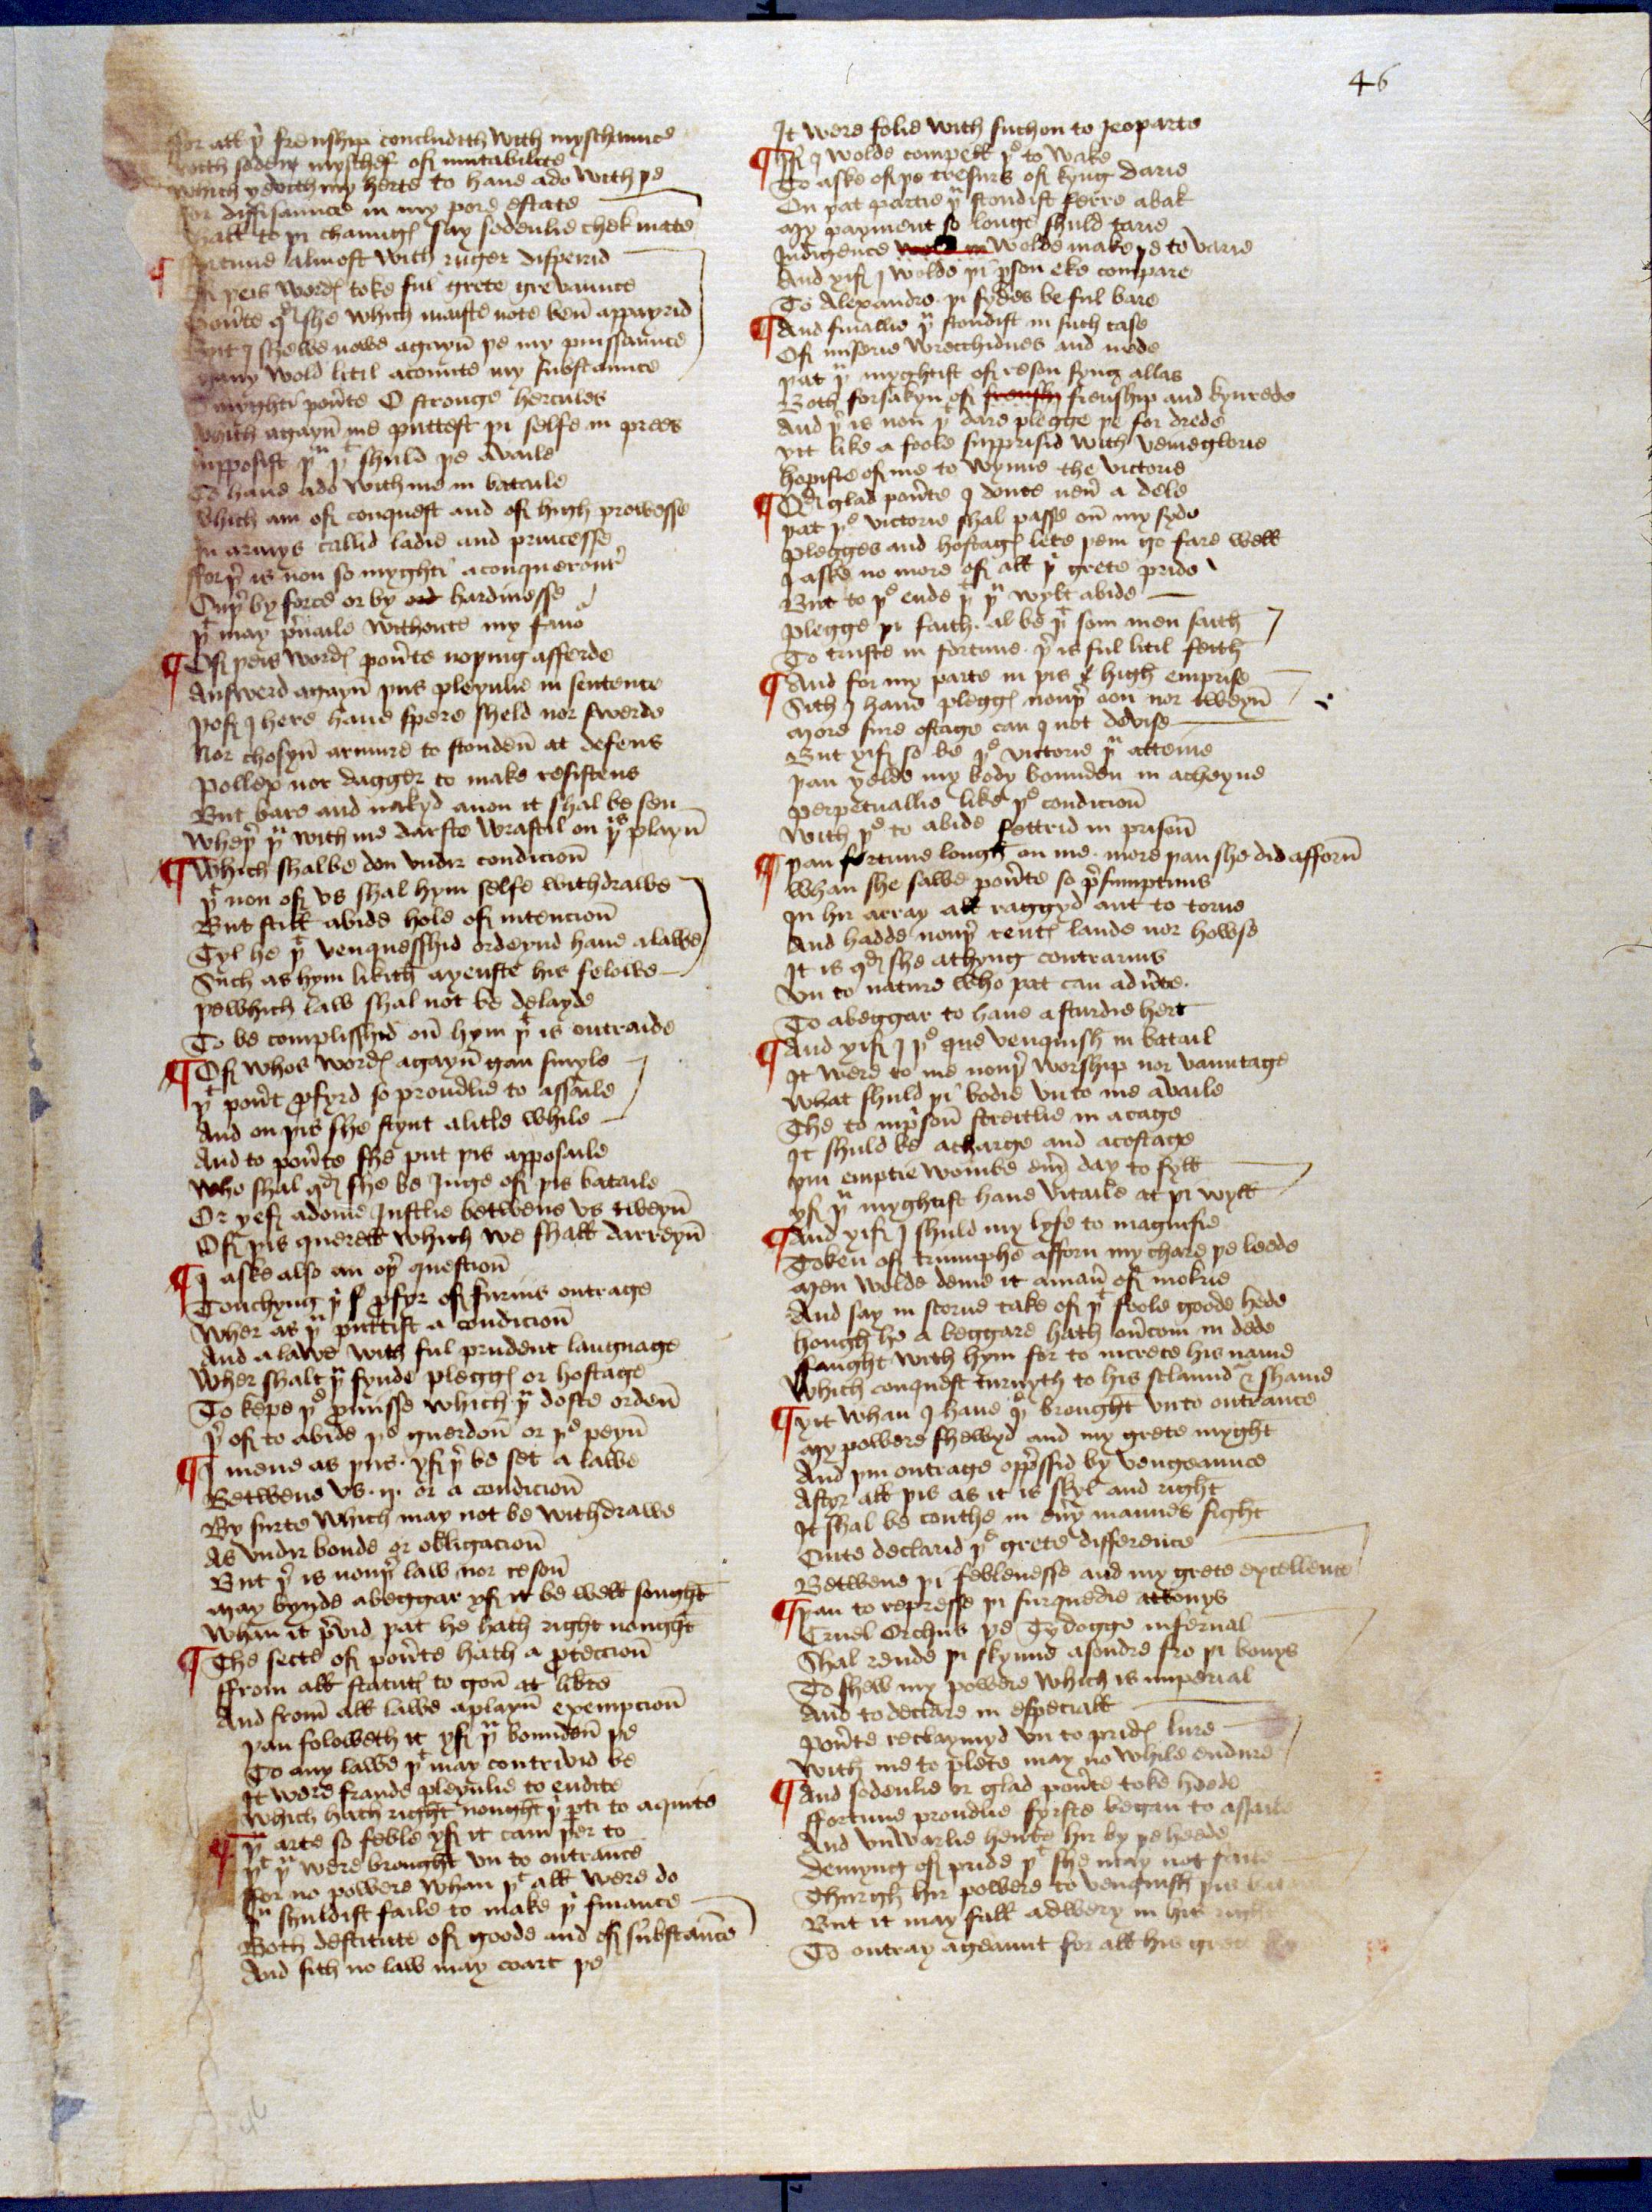 46
For all þr frenship concludith with myschaunce
with soden myschef off mutabilite
which yevith my herte to haue ado with þe
for diffisaunce in my pore estate
shall to þi chaungꝭ say sodenlie chek mate
¶ fortune almost with ruger dispeirid
Off þeis wordꝭ toke ful grete grevaunce
pouꝛte qd she which maiste note ben appayrid
But I shewe nowe agayn þe my puissaunce
many wold litil acounte my substaunce
O myghti pouꝛte O stronge hercules
which agayn me puttest þi selfe in prees
supposist þu þt shuld þe availe
To haue ado with me in bataile
which am off conquest and off high prowesse
In armys callid ladie and princesse
ffor þr is non so myghti a conquerour
Ouþr by force or by ord hardinesse
þt may pꝛuaile withoute my fauo
¶ Off þeis wordꝭ pouꝛte noþing afferde
Answerd agayn þus pleynlie in sentence
Þoff I here haue spere sheld nor swerde
Nor chosyn armure to stonden at defens
Pollex nor dagger to make resistens
But bare and nakyd anon it shal be sen
wheþr þu with me darste wrastil on þis playn
¶ which shalbe don vndir condicion
þt non off vs shal hym selfe withdrawe
But still abide hole off intencion
Tyl he þt venquesshid ordeynd haue a lawe
Such as hym likith ayenste his felowe
þewhich law shal not be delayde
To be complisshid on hym þt is outraide
¶ Off whos wordꝭ agayn gan smyle
þt pouꝛt ꝓfyrd so proudlie to assaile
And on þis she stynt alitle while
And to pouꝛte she put þis apposaile
who shal qd she be Juge off þis bataile
Or yeff adome Justlie betwene vs tweyn
Off þis querell which we shall darreyn
¶ I aske also an oþr question
Touchyng þi ꝓfyr off furius outrage
wher as þu puttist a condicion
And a lawe with ful prudent language
wher shalt þu fynde pleggꝭ or hostage
To kepe þe ꝓmisse which þu doste orden
þr off to abide þe guerdon or þe peyn
¶ I mene as þus yff þr be set a lawe
Betwene vs .ij. or a condicion
By surte which may not be withdrawe
As vndyr bonde or obligacion
But þr is nonþr law nor reson
may bynde abeggar yff it be well sought
whan it pꝛvid þat he hath right nought
¶ The secte off pouꝛte hath a ꝓteccion
ffrom all statutꝭ to gon at libte
And from all lawe aplayn exempcion
þan foloweth it yff þu bounden þe
To any lawe þt may contrivid be
It were fraude pleynlie to endite
which hath right nought þi ꝑti to aquite
¶ þu arte so feble yff it cam þer to
þt þu were brought vn to outrance
ffor no powere whan þt all were do
þu shuldist faile to make þi finance
Both destitute off goode and off substance
And sith no law may coart þe
It were folie with suchon to Jeoparte
¶ yff I wolde compell þe to wake
To aske off þe tresurs off kyng darie
On þat partie þu stondist ferre abak
my payment so longe shuld tarie
Indigence wolde make þe to varie
And yiff I wolde þi pson eke compare
To Alexandre þi sydes be ful bare
¶ And finallie þu stondist in such case
Off miserie wrecchidnes and nede
þat þu myghtist off reson syng allas
Both forsakyn off frenship frenship and kynrede
And þr is non þt dare plegge þe for drede
yit like a foole supprisid with veineglorie
hopiste off me to wynne the victorie
¶ Qd glad pouꝛte I doute neu a dele
þat þe victorie shal passe on my syde
plegges and hostagꝭ lete þem go fare well
I aske no more off all þi grete pride
But to þe ende þt þu wylt abide
plegge þi faith. al be þt som men saith
To truste in fortune þr is ful litil feith
¶ And for my parte in þis high emprise
Sith I haue pleggꝭ nonþr oon nor tweyn
more sure ostage can I not devise
But yiff so be þe victorie þu atteine
þan yelde my body bounden in acheyne
perpetuallie like þe condicion
with þe to abide fettrid in prison
¶ þan fortune lough on me. more þan she did afforn
whan she sawe pouꝛte so pꝛsumptuus
In hir array all raggyd ant to torne
And hadde nonþr rentꝭ lande nor howse
It is qd she athyng contrarius
Vn to nature who þat can aduꝛte.
To abeggar to haue a sturdie hert
¶ And yiff I þe que venquish in batail
It were to me nonþr worship nor vauntage
what shuld þi bodie vn to me availe
The to inpꝛson streitlie in acage
It shuld be acharge and acostage
þin emptie wombe euy day to fyll
yff þu myghtist haue vitaile at þi wyll
¶ And yiff I shuld my lyfe to magnifie
Token off triumphe afforn my chare þe leede
men wolde deme it a man off mokrie
And say in scorne take off þt foole goode hede
hough he a beggare hath ouꝛcom in dede
ffaught with hym for to increce his name
Which conquest turnyth to his sclaund & shame
¶ yit whan I haue þe brought vnto outrance
my powere shewyd and my grete myght
And þin outrage oppꝛssid by vengeaunce
Aftyr all þis as it is skyl and right
It shal be couthe in euy mannes sight
Quite declarid þe grete difference
Betwene þi feblenesse and my grete excellence
¶ þan to represse þi surquedie attonys
Cruel Orchus þe Tydogge infernal
Shal rende þi skynne asondre fro þi bonys
To shew my powere which is imperial
And to declare in especiall
pouꝛte reclaymyd vn to pridꝭ lure
with me to plete may no while endure
¶ And sodenlie or glad pouꝛte toke heede
ffortune proudlie fyrste began to assaile
And vnwarlie hente hir by þe heede
Demyng off pride þt she may not faile
Thurgh hir powere to venquish þis bat
But it may fall adwery in his right
To outray ageaunt for all his grete